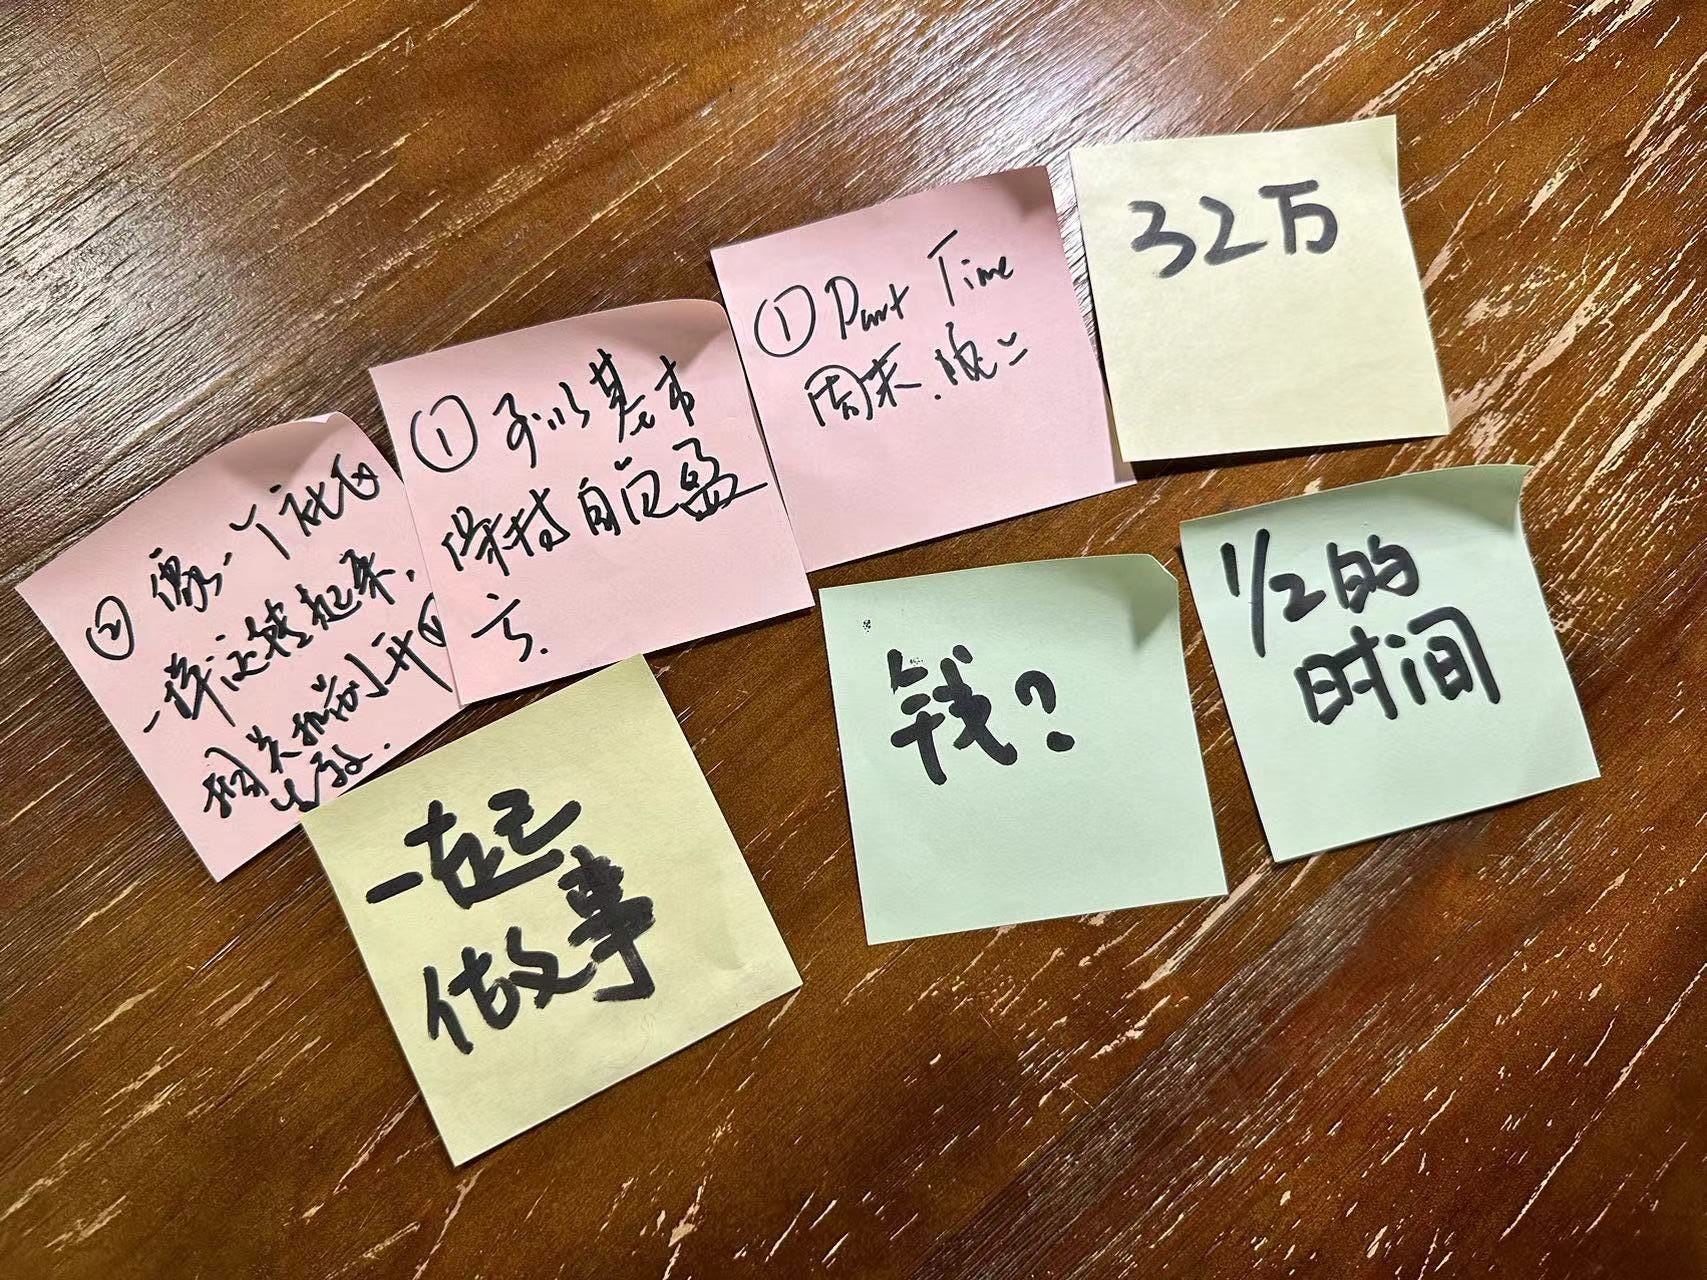 ② 像一个社区
一样运转起来.
相关机制开
生效.
① 可以基本
保持自负盈
亏.
① Part Time
周末.晚上
32万
一起
做事
钱?
1/2的
时间